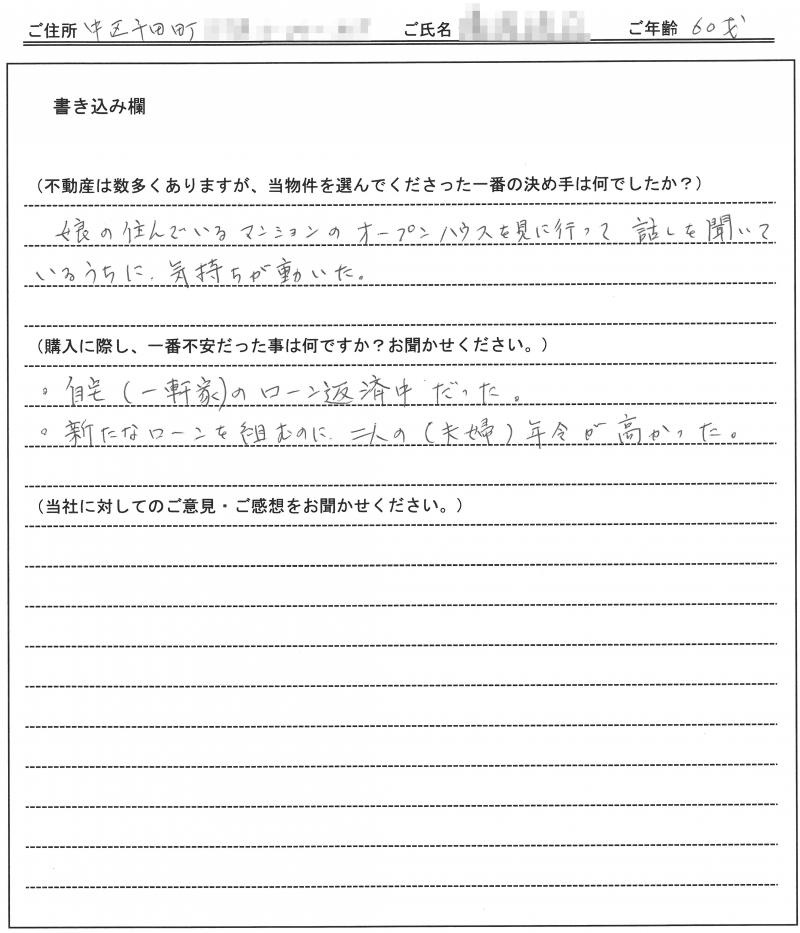 ご住所 中区千田町 ご氏名 ご年齢 60才
書き込み欄
（不動産は数多くありますが、当物件を選んでくださった一番の決め手は何でしたか？）
娘の住んでいるマンションのオープンハウスを見に行って 話しを聞いて
いるうちに、気持ちが動いた。
（購入に際し、一番不安だった事は何ですか？お聞かせください。）
。自宅（一軒家）のローン返済中だった。
。新たなローンを組むのに、二人の（夫婦）年令が高かった。
（当社に対してのご意見・ご感想をお聞かせください。）